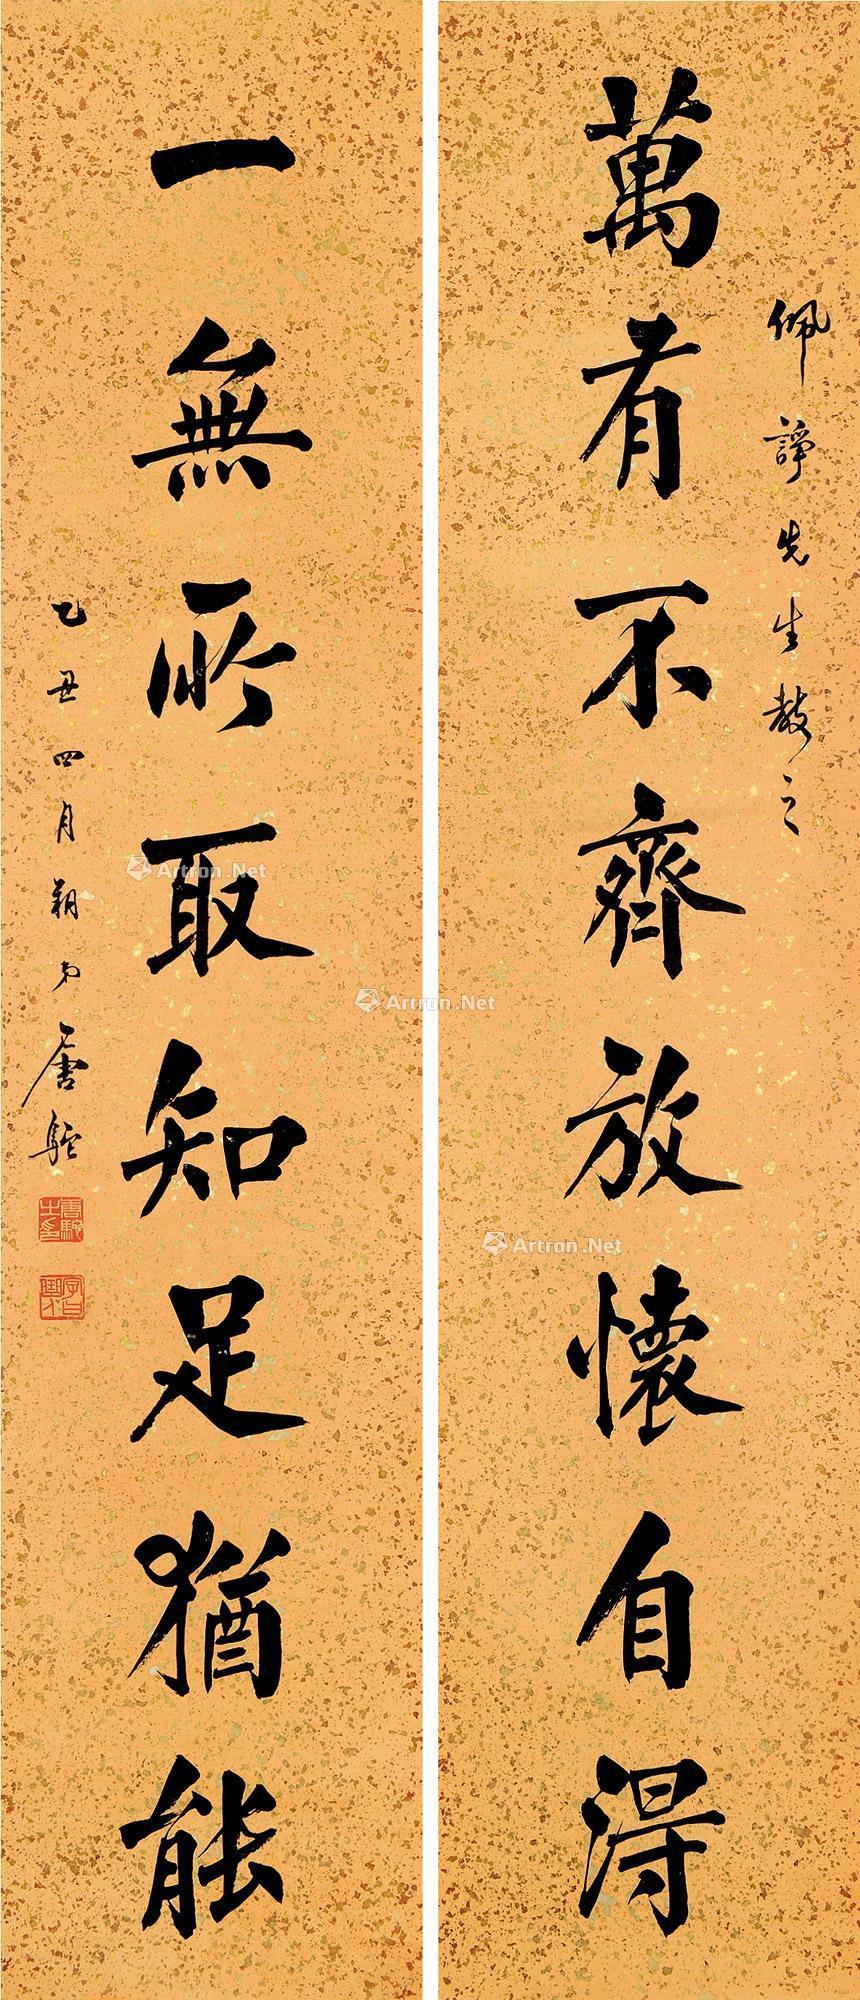 佩諍先生教之
萬有不齊放懷自得
一無所取知足猶能
乙丑四月朔弟唐駝
唐駝之印
Artron.Net
Artron.Net
Artron.Net